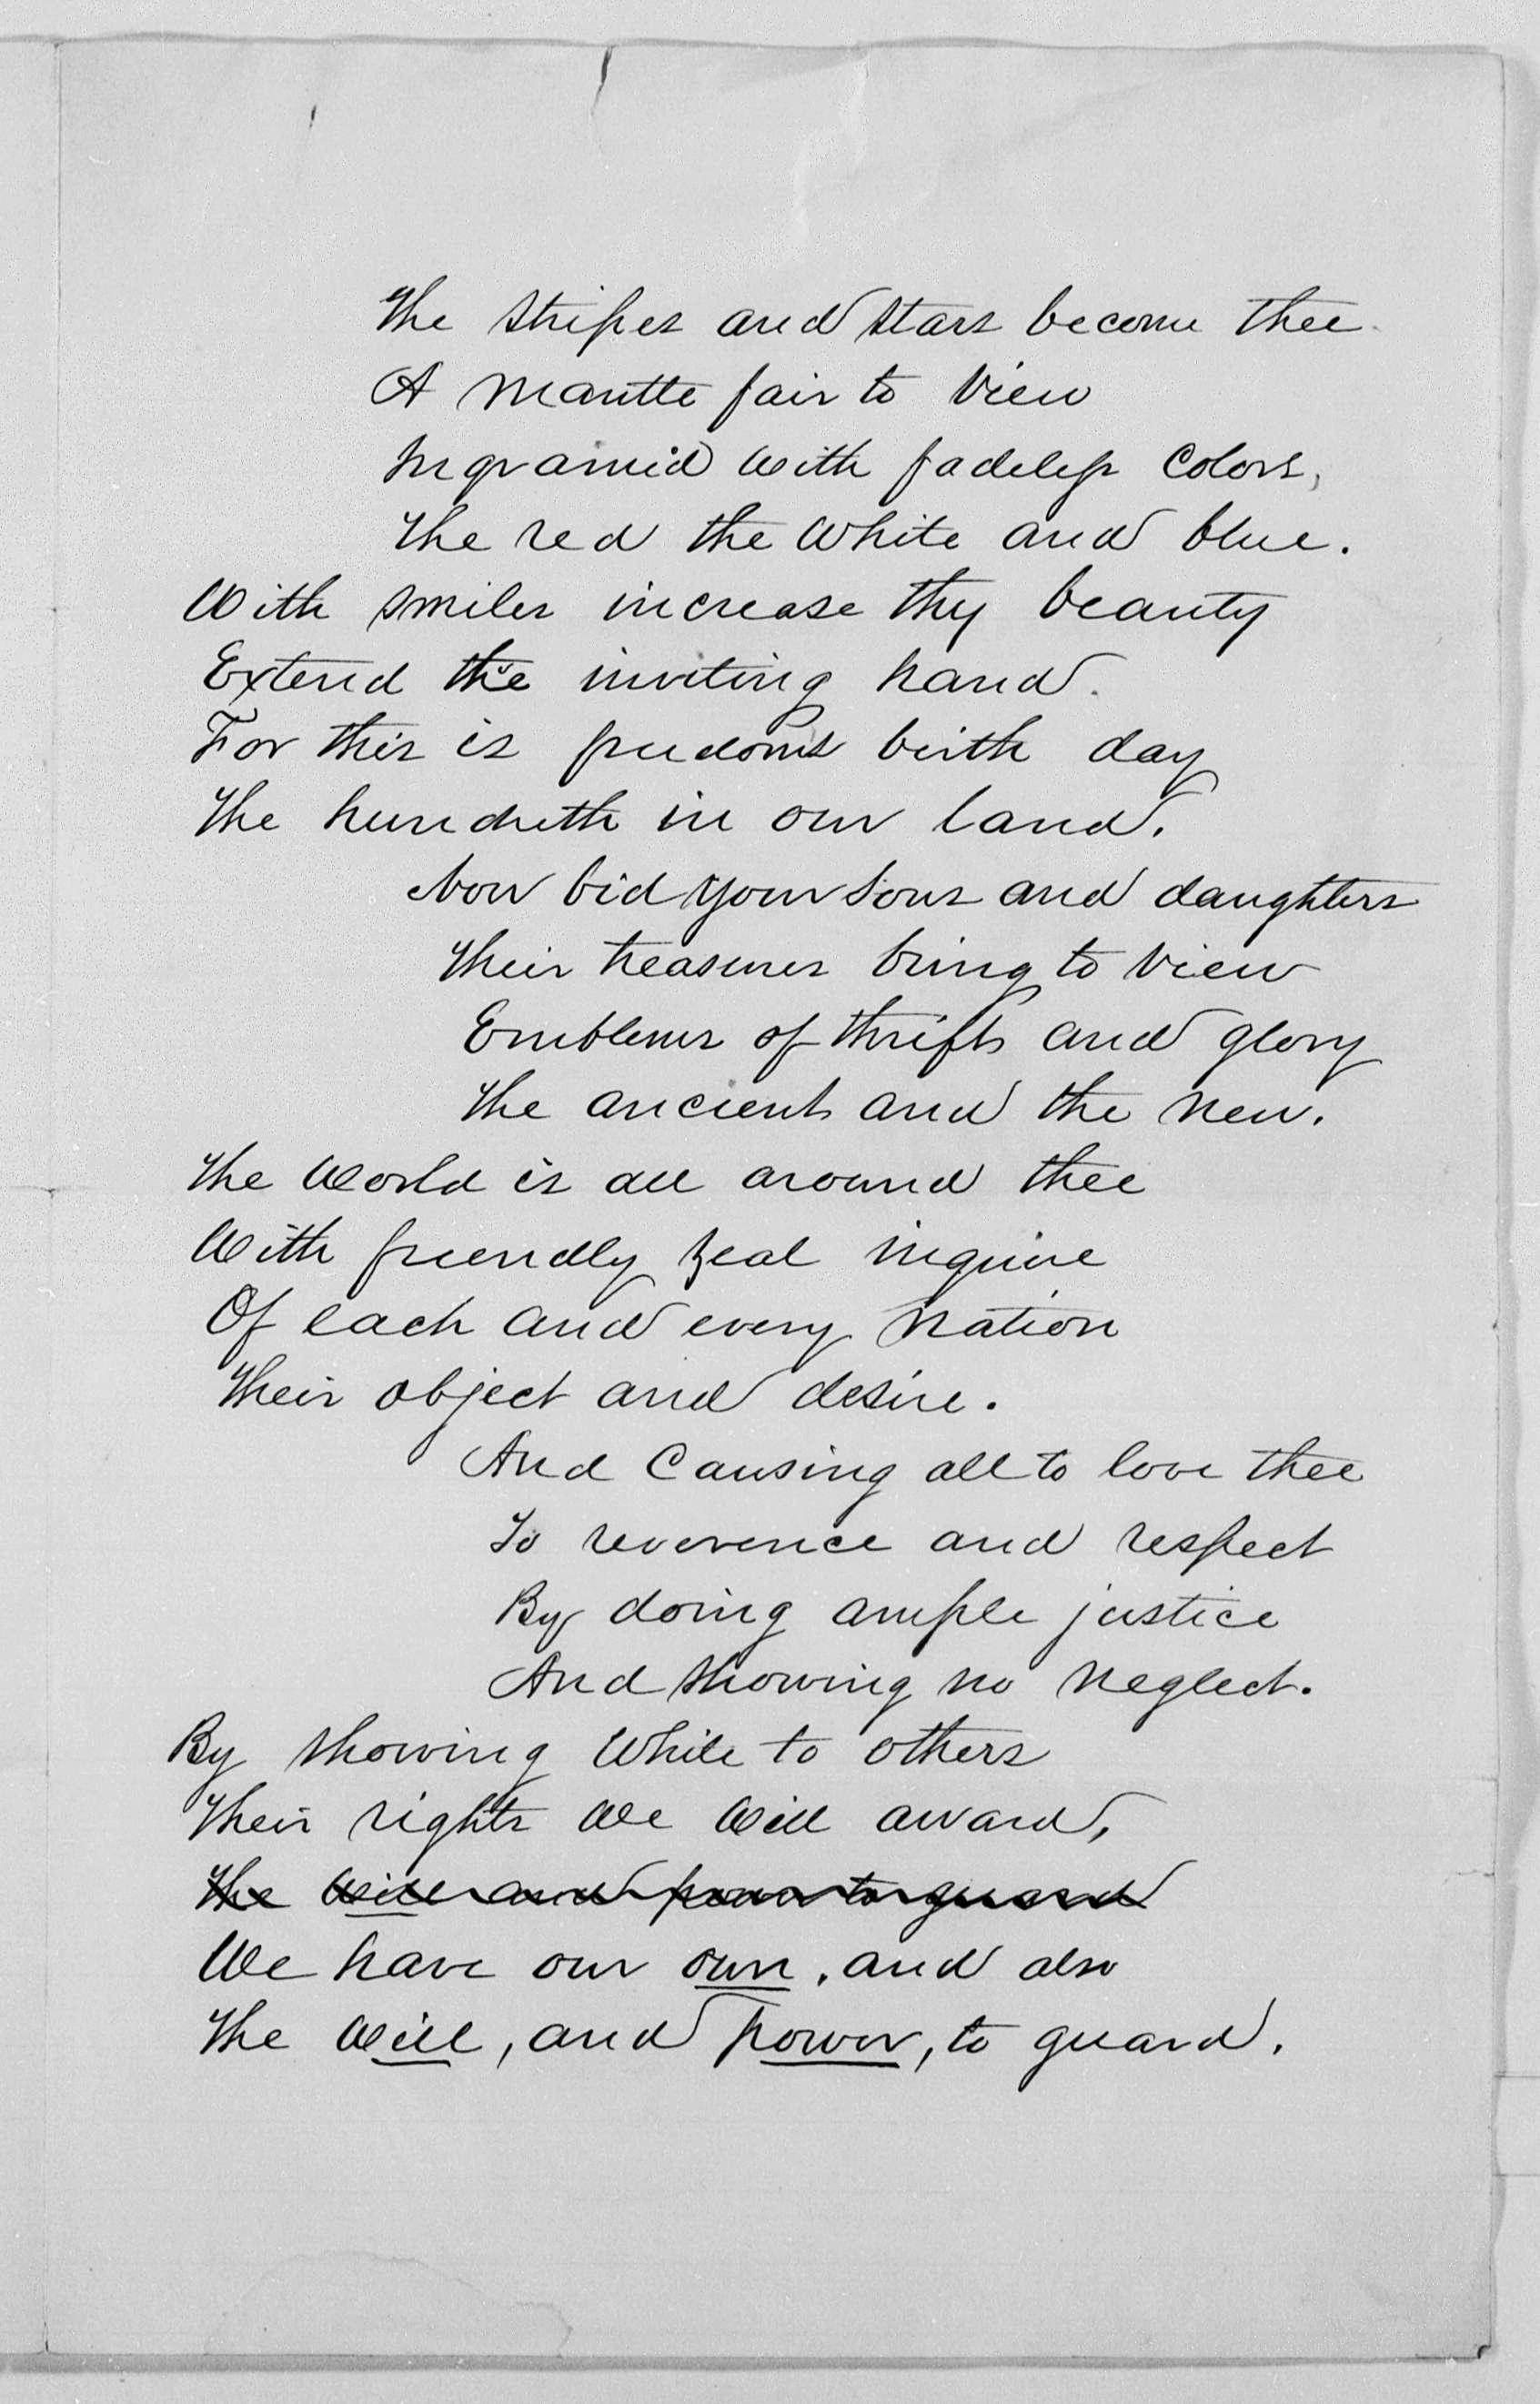 The stripes and stars become thee
A mantle fair to view
Ingrained with fadeless Colors,
The red the White and blue.
With smiles increase thy beauty
Extend the inviting hand.
For this is freedoms birth day
The hundreth in our land.
Now bid your sons and daughters
Their treasures bring to view
Emblems of thrift and glory
The ancient and the new.
The World is all around thee
With friendly zeal inquire
Of each and every Nation
Their object and desire.
And Causing all to love thee
To reverence and respect
By doing ample justice
And showing no neglect.
By showing While to others
Their rights We Will award,
The Will and power to guard
We have our own, and also
The Will, and power, to guard.